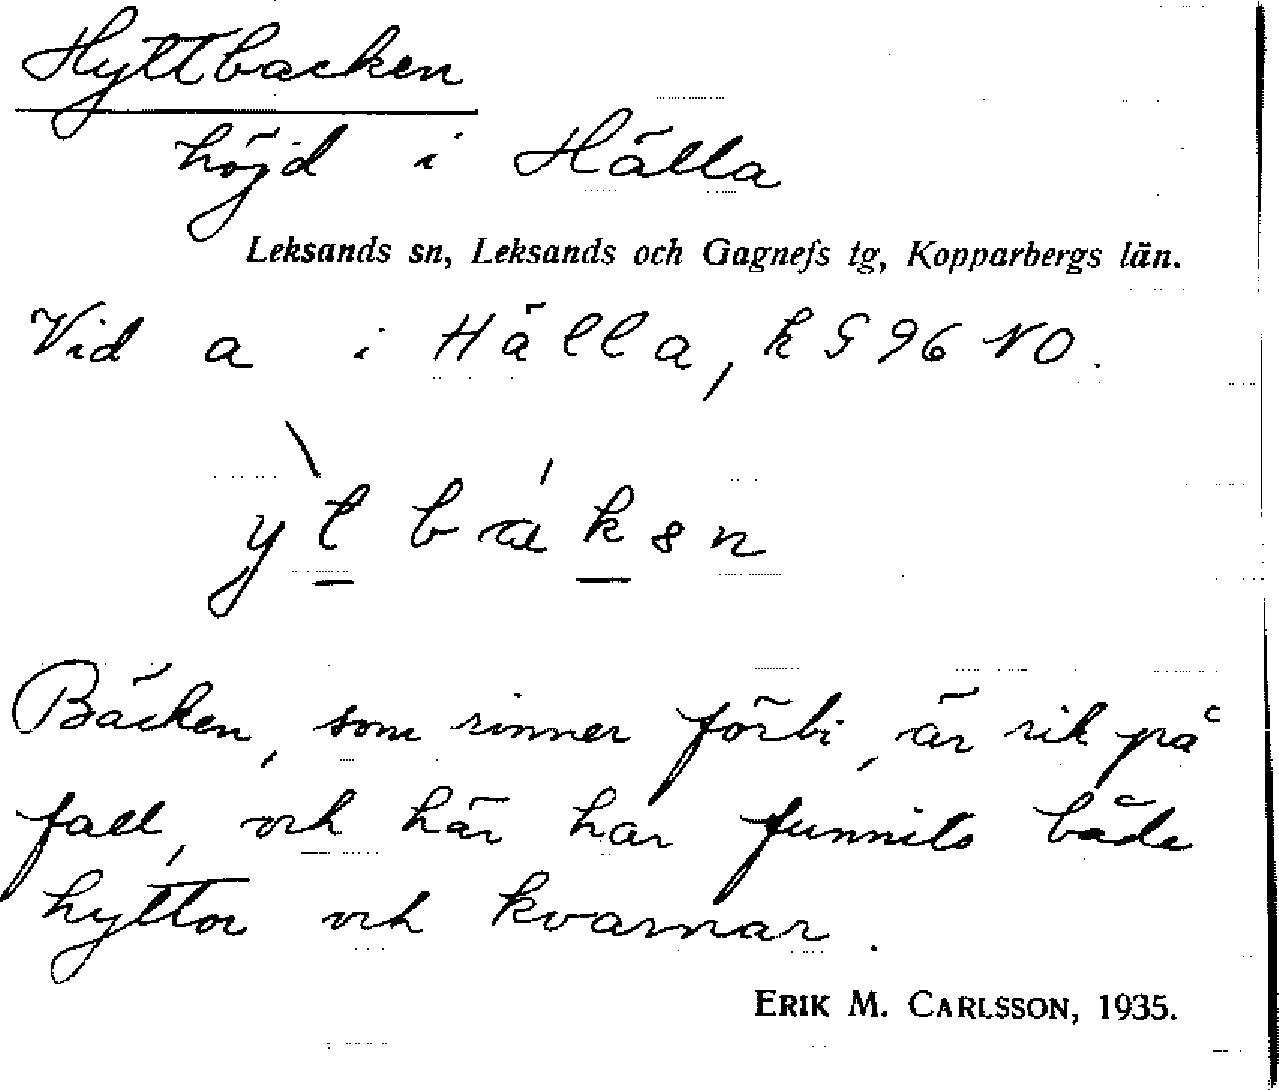 Hyttbacken
höjd i Hälla
Leksands sn, Leksands och Gagnefs tg, Kopparbergs län.
Vid a i Hälla, k S 96 NO.
Bäcken, som rinner förbi, är rik på
fall, och här har funnits både
hyttor och kvarnar.
ERIK M. CARLSSON, 1935.